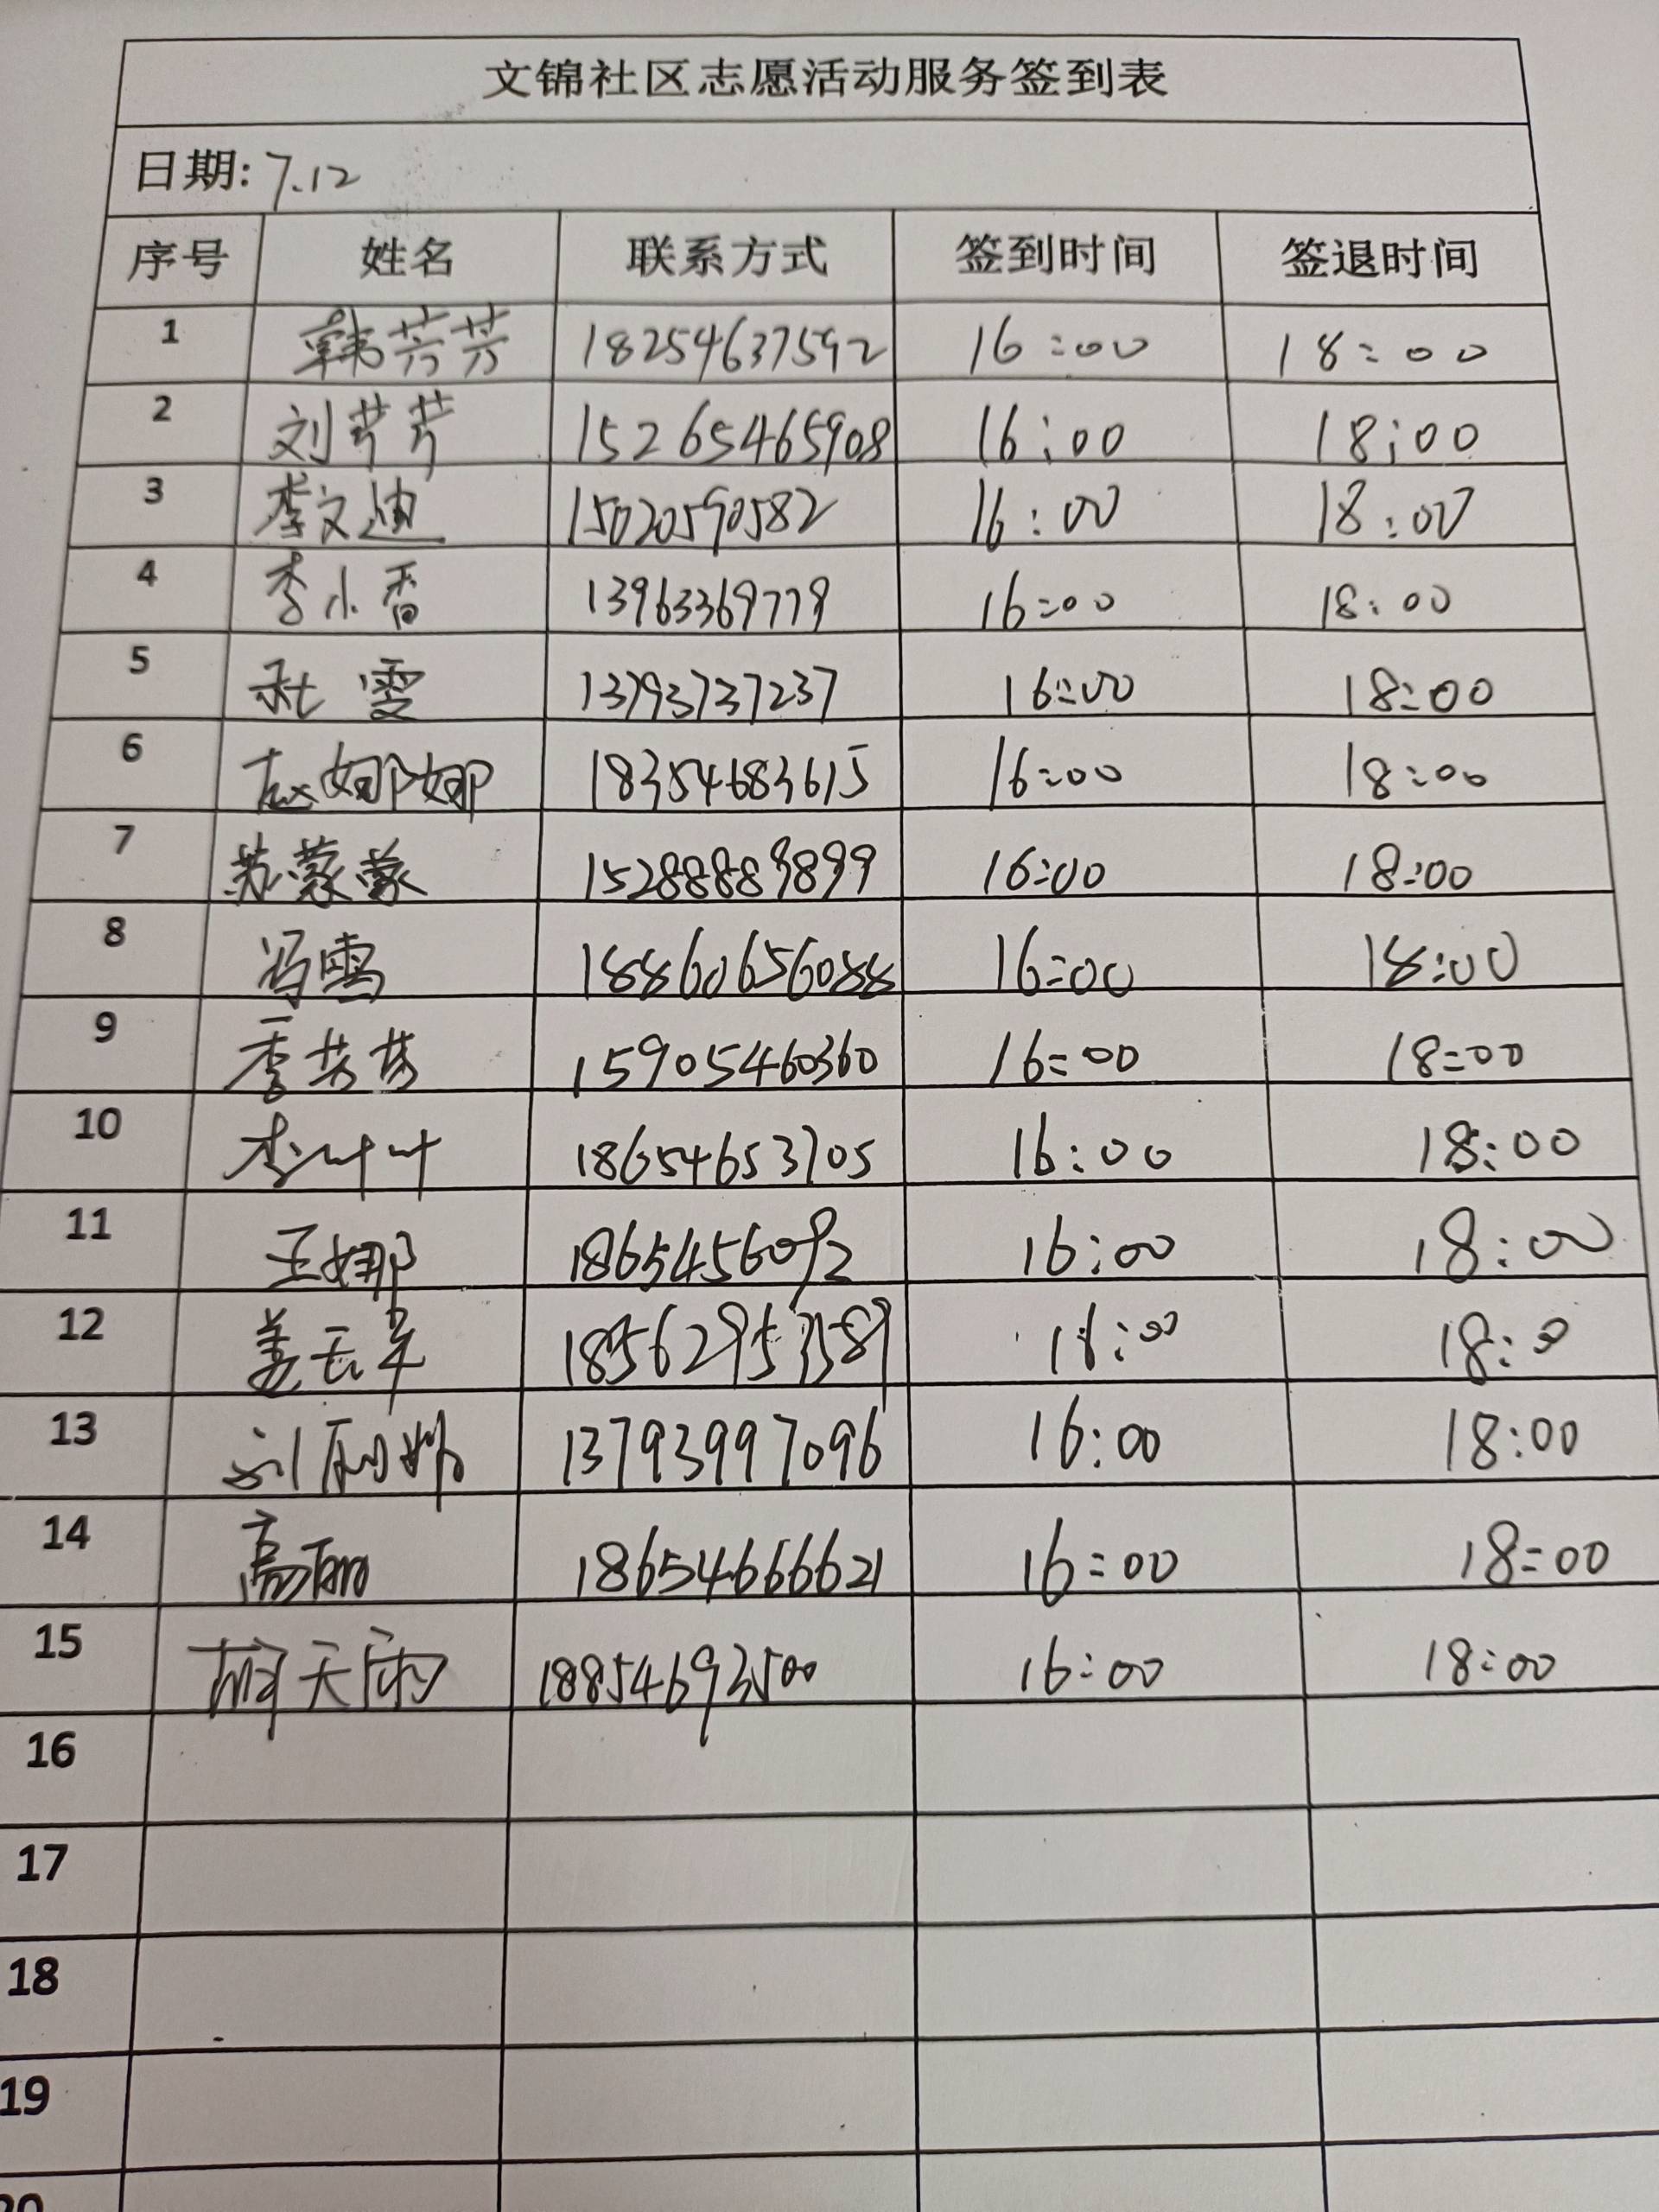 文锦社区志愿活动服务签到表
日期: 7.12
序号 姓名 联系方式 签到时间 签退时间
1 韩芳芳 18254637592 16:00 18:00
2 刘芹芹 15265465908 16:00 18:00
3 李文迪 15020590582 16:00 18:00
4 李小香 13963369779 16:00 18:00
5 杜雯 13793737237 16:00 18:00
6 赵娜娜 18354683615 16:00 18:00
7 苏蒙蒙 15288889899 16:00 18:00
8 冯雪 18860656088 16:00 18:00
9 季芳芳 15905460360 16:00 18:00
10 李叶叶 18654653705 16:00 18:00
11 王娜 1865456092 16:00 18:00
12 姜 18562953589 16:00 18:0
13 刘丽娜 13793997096 16:00 18:00
14 高丽 18654666621 16:00 18:00
15 天雨 18854693500 16:00 18:00
16
17
18
19
20